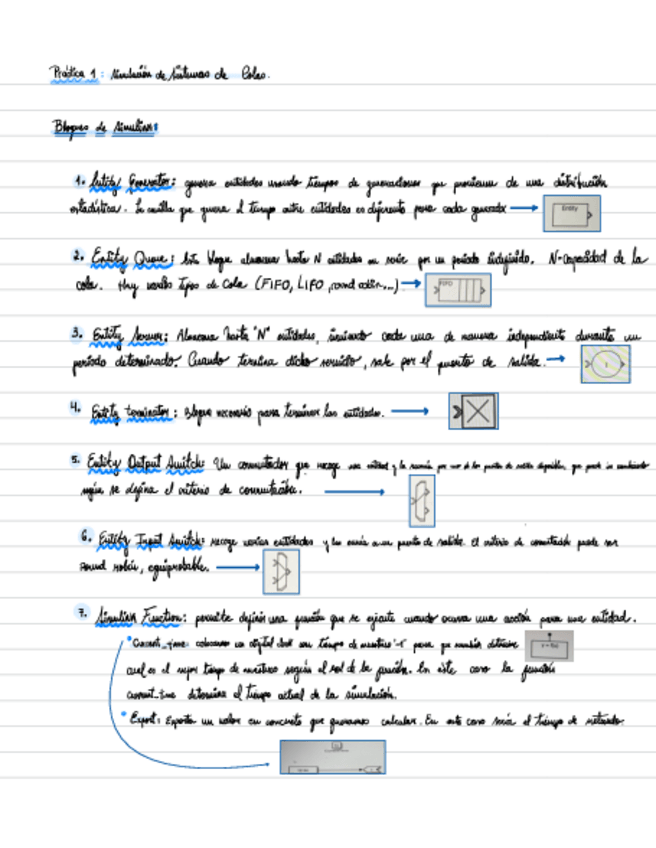 Práctica 1: Simulación de Sistemas de Colas.
Bloques de Simulink:
1. Entity Generator: genera entidades usando tiempos de generaciones que provienen de una distribución
estadística. La semilla que genera el tiempo entre entidades es diferente para cada generador
Entity
2. Entity Queue: Este bloque almacena hasta N entidades en serie por un periodo indefinido. N=capacidad de la
cola. Hay varios tipos de Cola (FIFO, LIFO, ...)
FIFO
3. Entity Server: Almacena hasta "N" entidades, sirviendo cada una de manera independiente durante un
periodo determinado. Cuando termina dicho servicio, sale por el puerto de salida.
4. Entity terminator: Bloque necesario para terminar las entidades.
5. Entity Output Switch: Un conmutador que recoge una entidad y la envía por uno de los puertos de salida disponibles, que puede ir cambiando
según se defina el criterio de conmutación.
6. Entity Input Switch: recoge varias entidades y las envía a un puerto de salida. El criterio de conmutación puede ser
round robin, equiprobable.
7. Simulink Function: permite definir una función que se ejecute cuando ocurra una acción para una entidad.
Current_time: colocamos un digital clock con tiempo de muestreo "-1" para que simulink determine
cual es el mejor tiempo de muestreo según el rol de la función. En este caso la función
current_time determina el tiempo actual de la simulación.
Export: Exporta un valor en concreto que queramos calcular. En este caso sería el tiempo de retardo.